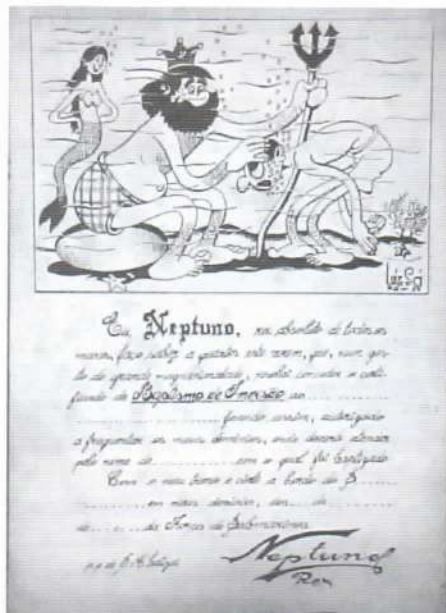 Luiz Sá
Eu, Neptuno, rei absoluto de todos os
mares, faço saber a quantos este virem, que, num ges-
to de grande magnanimidade, resolvi conceder o certi-
ficado de Baptismo de Imersão ao
ficando assim, autorizado
a frequentar os meus domínios, onde deverá atender
pelo nome de com o qual foi batizado
Dado e meu a bordo do S
em meus domínios, aos de
de da Força de Submarinos
Neptuno
Rex